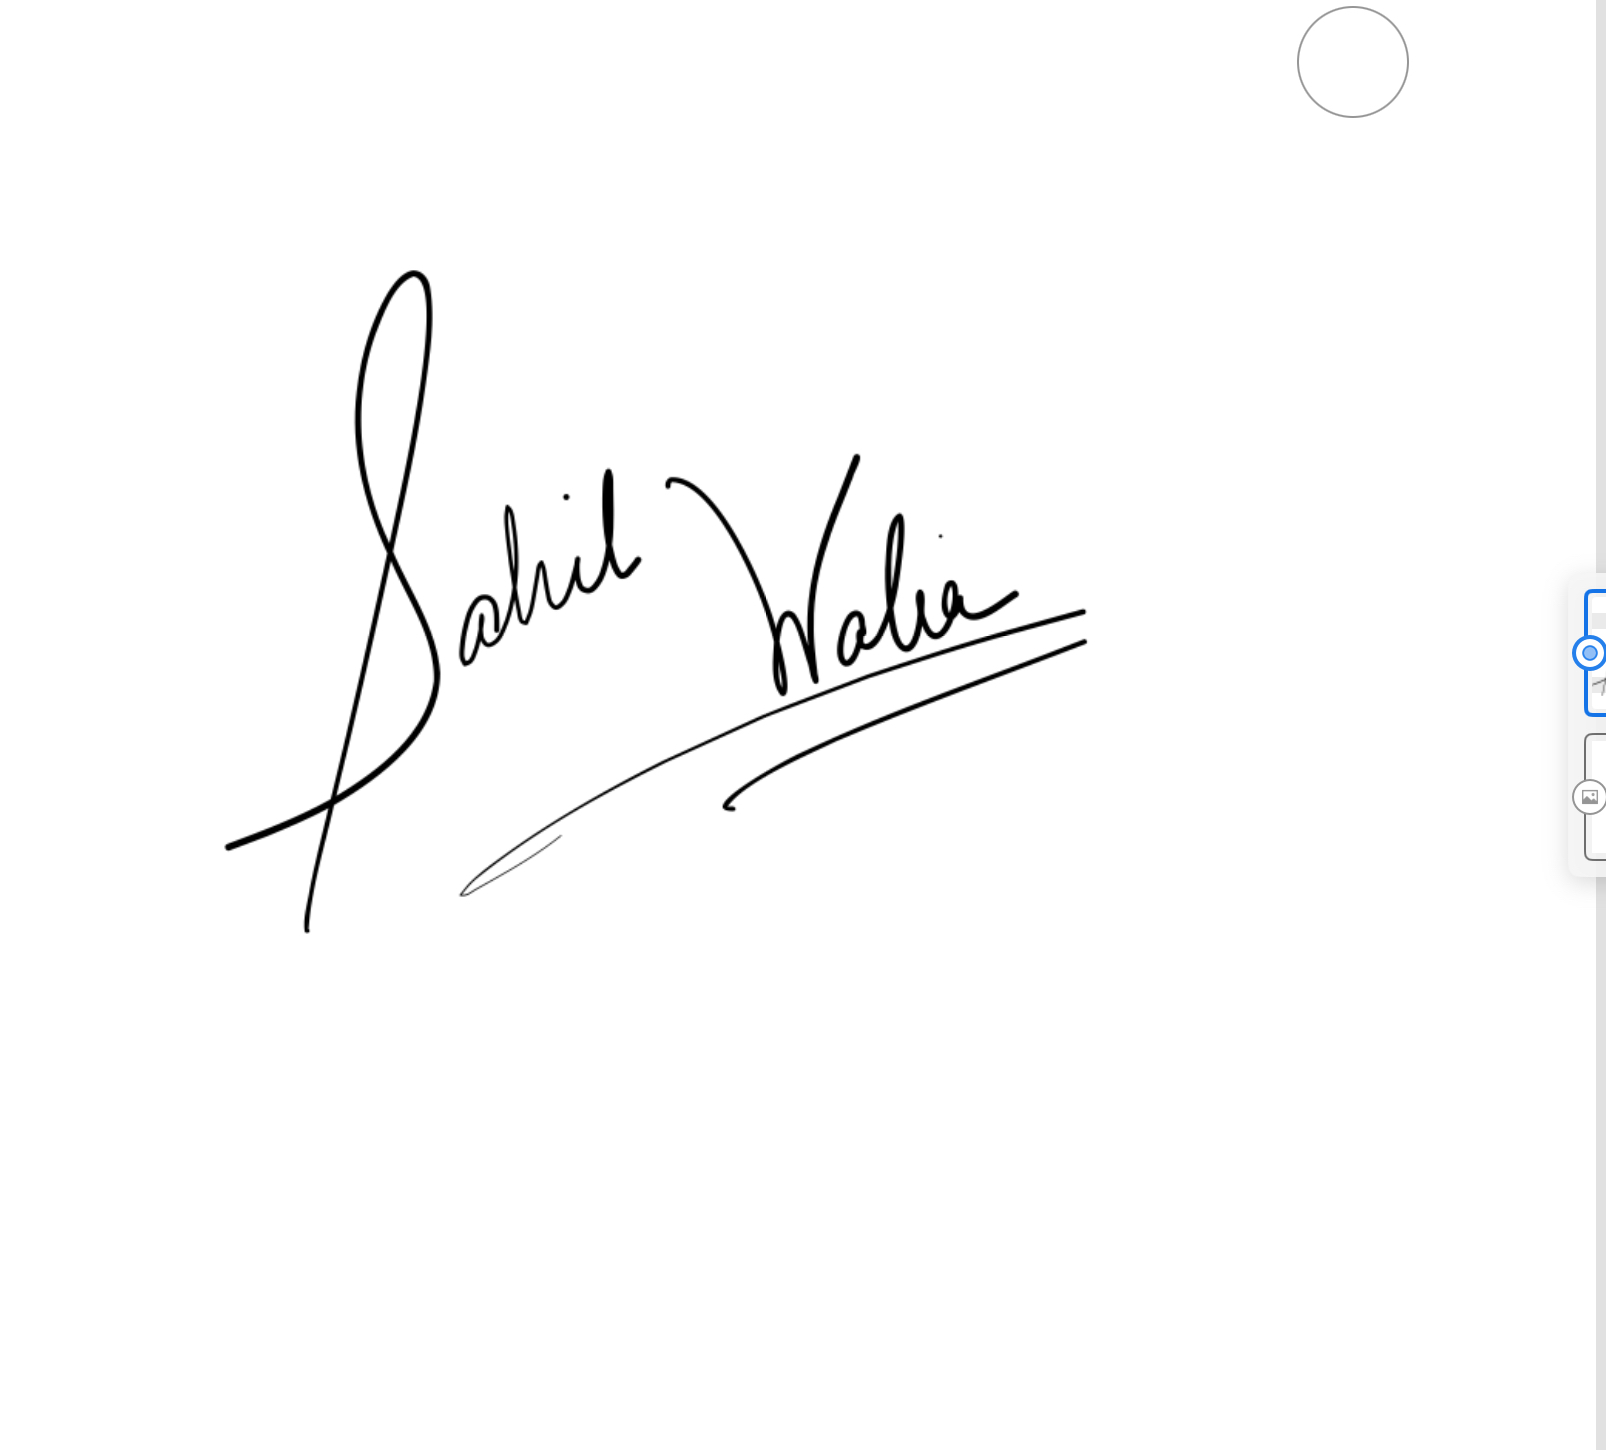 Sahil Walia